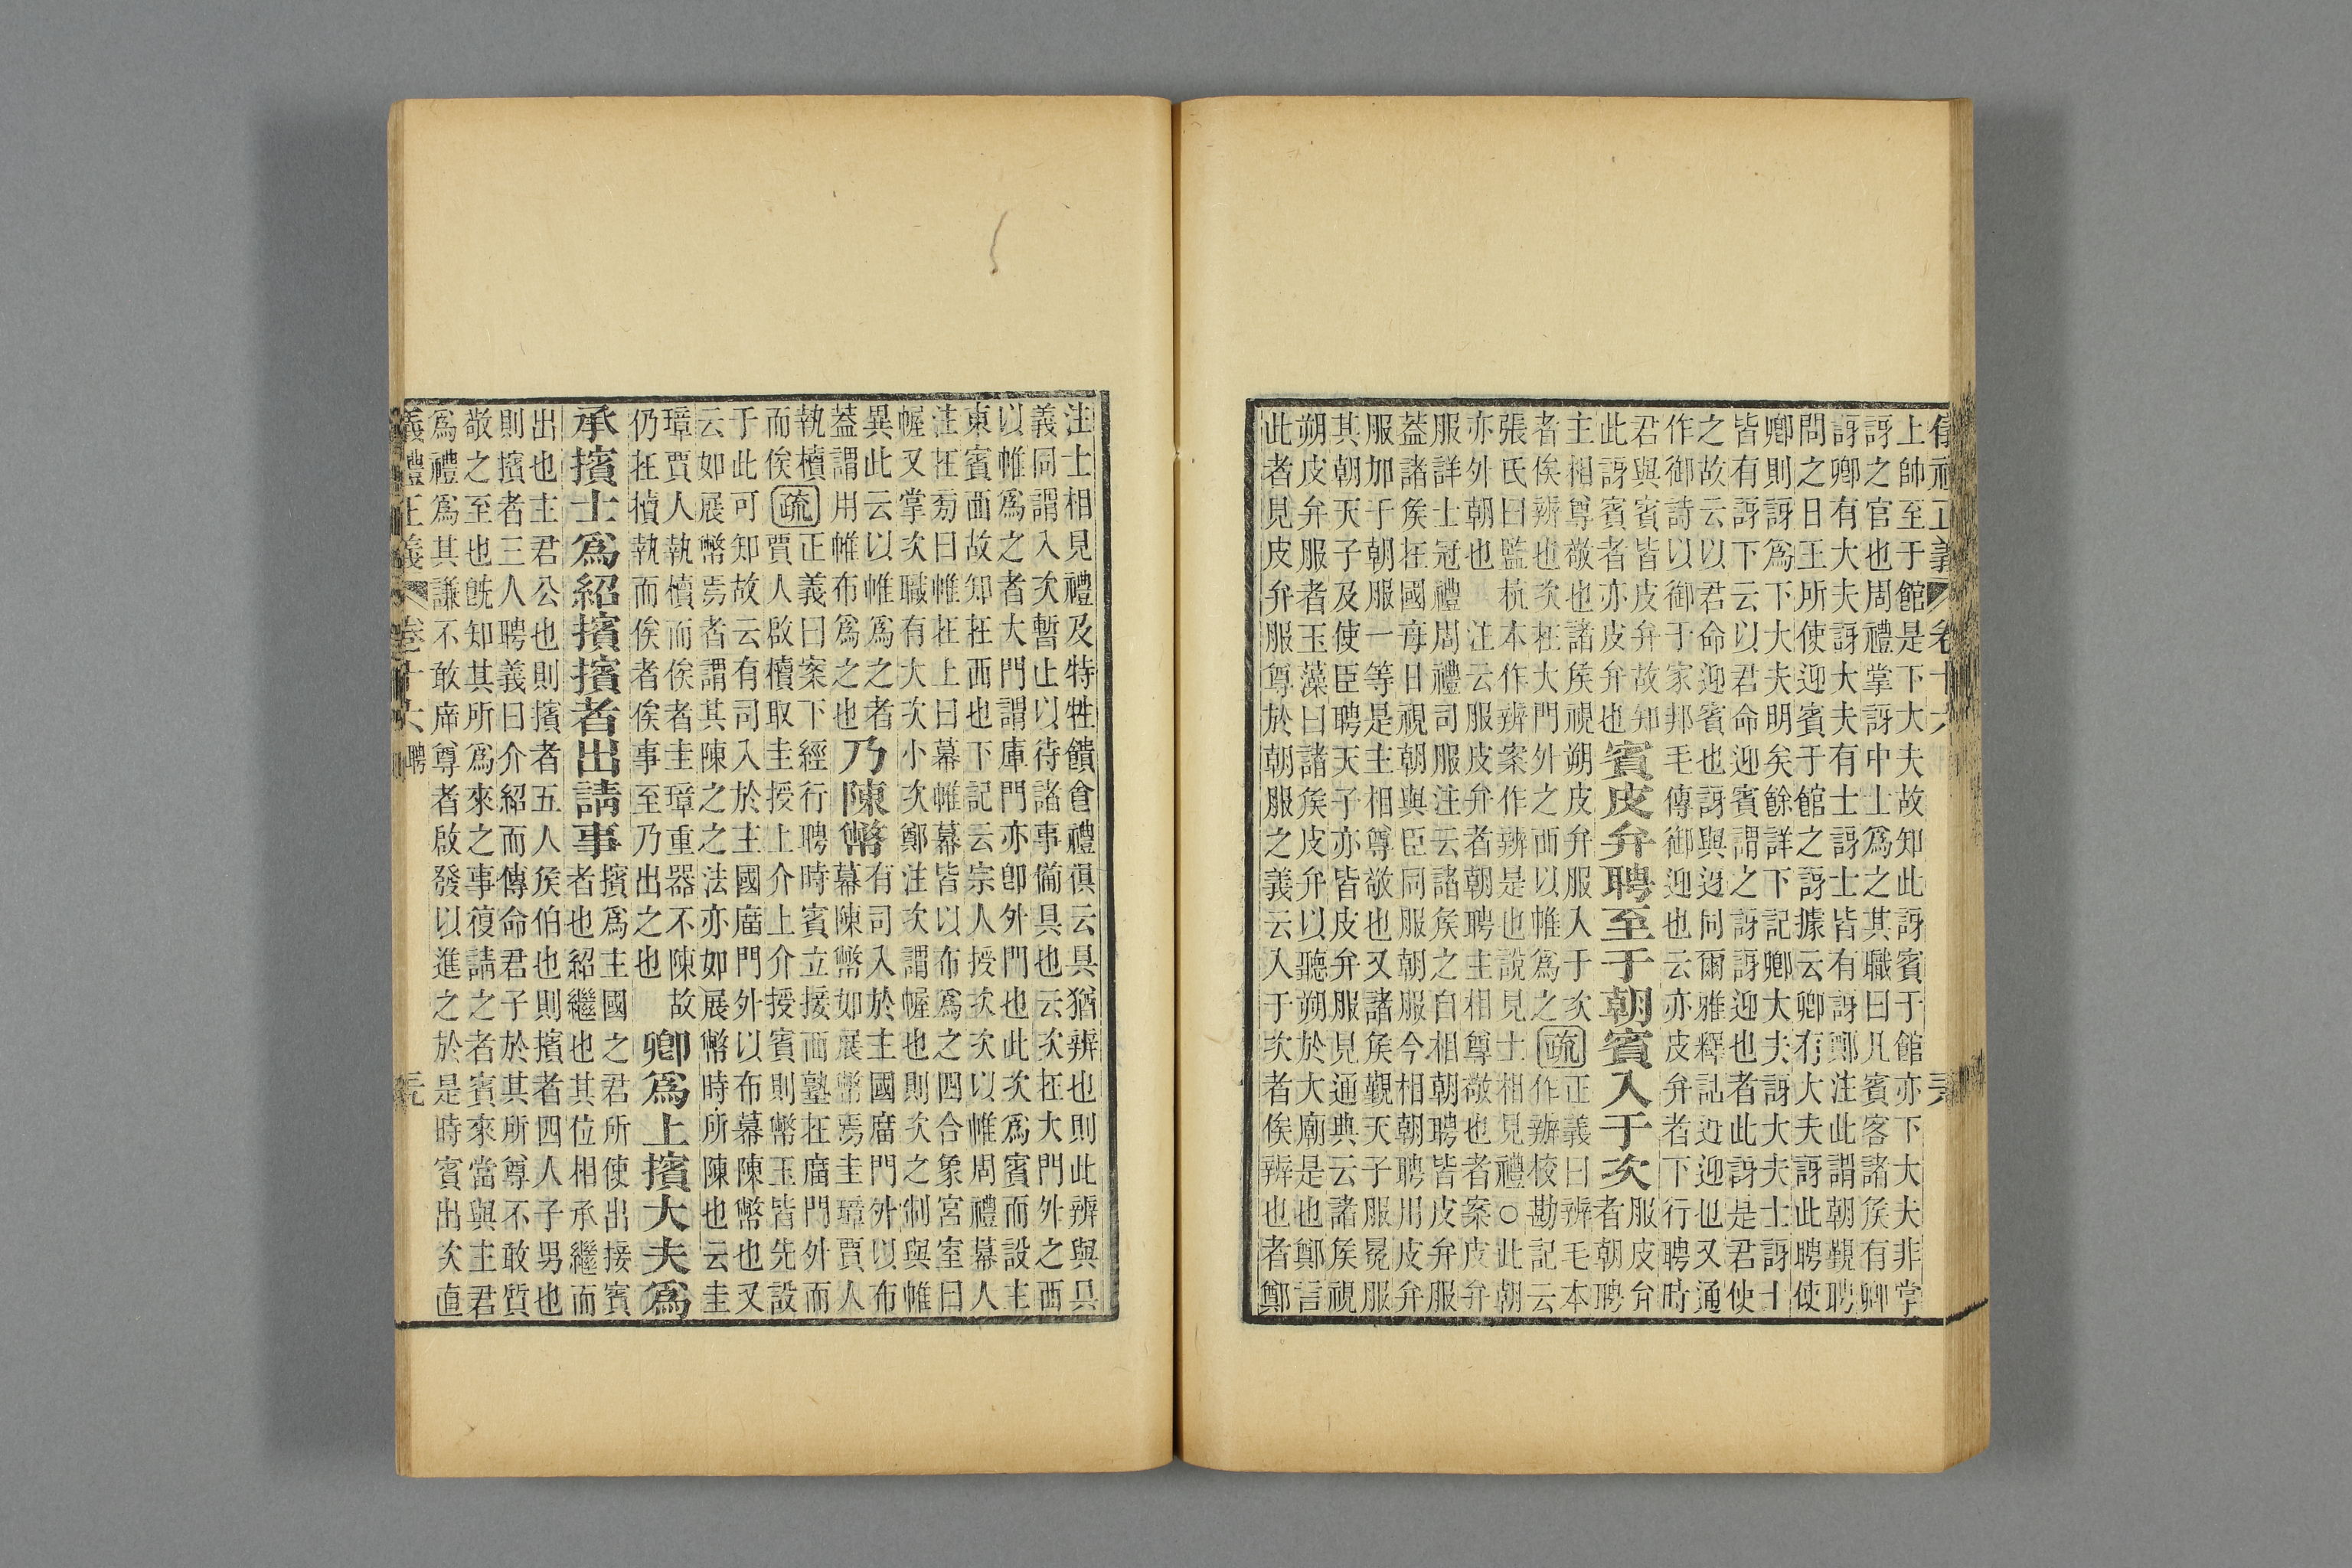 儀禮正義 卷十六
上帥至于館是下大夫故知此訝賓于館亦下大夫非掌
訝之官也周禮掌訝中士爲之其職曰凡賓客諸侯有卿
訝卿有大夫訝大夫有士訝士皆有訝鄭注此謂朝覲聘
問之日王所使迎賓于館之訝據云卿有大夫訝此聘使
卿則訝爲下大夫明矣餘詳下記卿大夫訝大夫士訝士
皆有訝下云以君命迎賓謂之訝訝迎也者此訝是君使
之故云以君命迎賓也訝與迓同爾雅釋詁迓迎也又通
作御詩以御于家邦毛傳御迎也云亦皮弁者下行聘時
君與賓皆皮弁故知
此訝賓者亦皮弁也
賓皮弁聘至于朝賓入于次
服皮弁
者朝聘
主相尊敬也諸侯視朔皮弁服入于次
者俟辨也次在大門外之西以帷爲之
疏
正義曰辨毛本
作辦校勘記云
張氏曰監杭本作辨案作辨是也說見士相見禮○此朝
亦外朝也 注云服皮弁者朝聘主相尊敬也者案皮弁
服詳士冠禮 周禮司服注云諸侯之自相朝聘皆皮弁服
蓋諸侯在國每日視朝與臣同服朝服今相朝聘用皮弁
服加于朝服一等是主相尊敬也又諸侯覲天子服冕服
其朝天子及使臣聘天子亦皆皮弁服見通典云諸侯視
朔皮弁服者玉藻曰諸侯皮弁以聽朔於大廟是也鄭言
此者見皮弁服尊於朝服之義云入于次者俟辨也者鄭
注士相見禮及特牲饋食禮俱云具猶辨也則此辨與具
義同謂入次暫止以待諸事備具也云次在大門外之西
以帷爲之者大門謂庫門亦卽外門也此次爲賓而設主
東賓西故知在西也下記云宗人授次次以帷周禮幕人
注在旁曰帷在上曰幕帷幕皆以布爲之四合象宮室曰
幄又掌次職有大次小次鄭注次謂幄也則次之制與帷
異此云以帷爲之者
蓋謂用帷布爲之也
乃陳幣
有司入於主國廟門外以布
幕陳幣如展幣焉圭璋賈人
執櫝
而俟
疏
正義曰案下經行聘時賓立接西塾在廟門外而
賈人啟櫝取圭授上介上介授賓則幣玉皆先設
于此可知故云有司入於主國廟門外以布幕陳幣也又
云如展幣焉者謂其陳之之法亦如展幣時所陳也云圭
璋賈人執櫝而俟者圭璋重器不陳故
仍在櫝執而俟者俟事至乃出之也
卿爲上擯大夫爲
承擯士爲紹擯擯者出請事
擯爲主國之君所使出接賓
者也紹繼也其位相承繼而
出也主君公也則擯者五人侯伯也則擯者四人子男也
則擯者三人聘義曰介紹而傳命君子於其所尊不敢質
敬之至也旣知其所爲來之事復請之者賓來當與主君
爲禮爲其謙不敢席尊者啟發以進之於是時賓出次直
儀禮正義 卷十六 聘